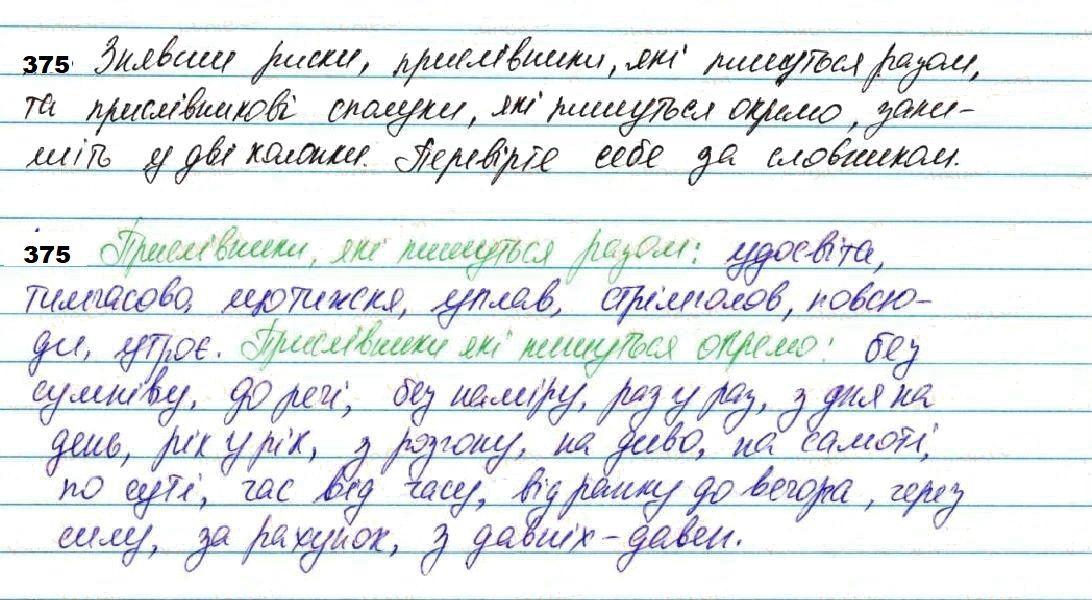 375 Знявши риски, прислівники, які пишуться разом,
та прислівникові сполуки, які пишуться окремо, запи-
шіть у дві колонки. Перевірте себе за словником.
375 Прислівники, які пишуться разом: удосвіта,
тимчасово, щотижня, уплав, стрімголов, повсю-
ди, утроє. Прислівники які пишуться окремо: без
сумніву, до речі, без наміру, раз у раз, з дня на
день, рік у рік, з розгону, на диво, на самоті,
по суті, час від часу, від ранку до вечора, через
силу, за рахунок, з давніх-давен.